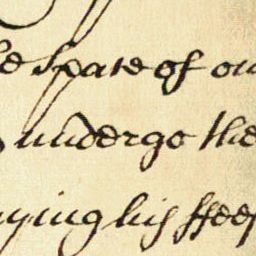 e Spate of ou
undergo the
ying his ffee